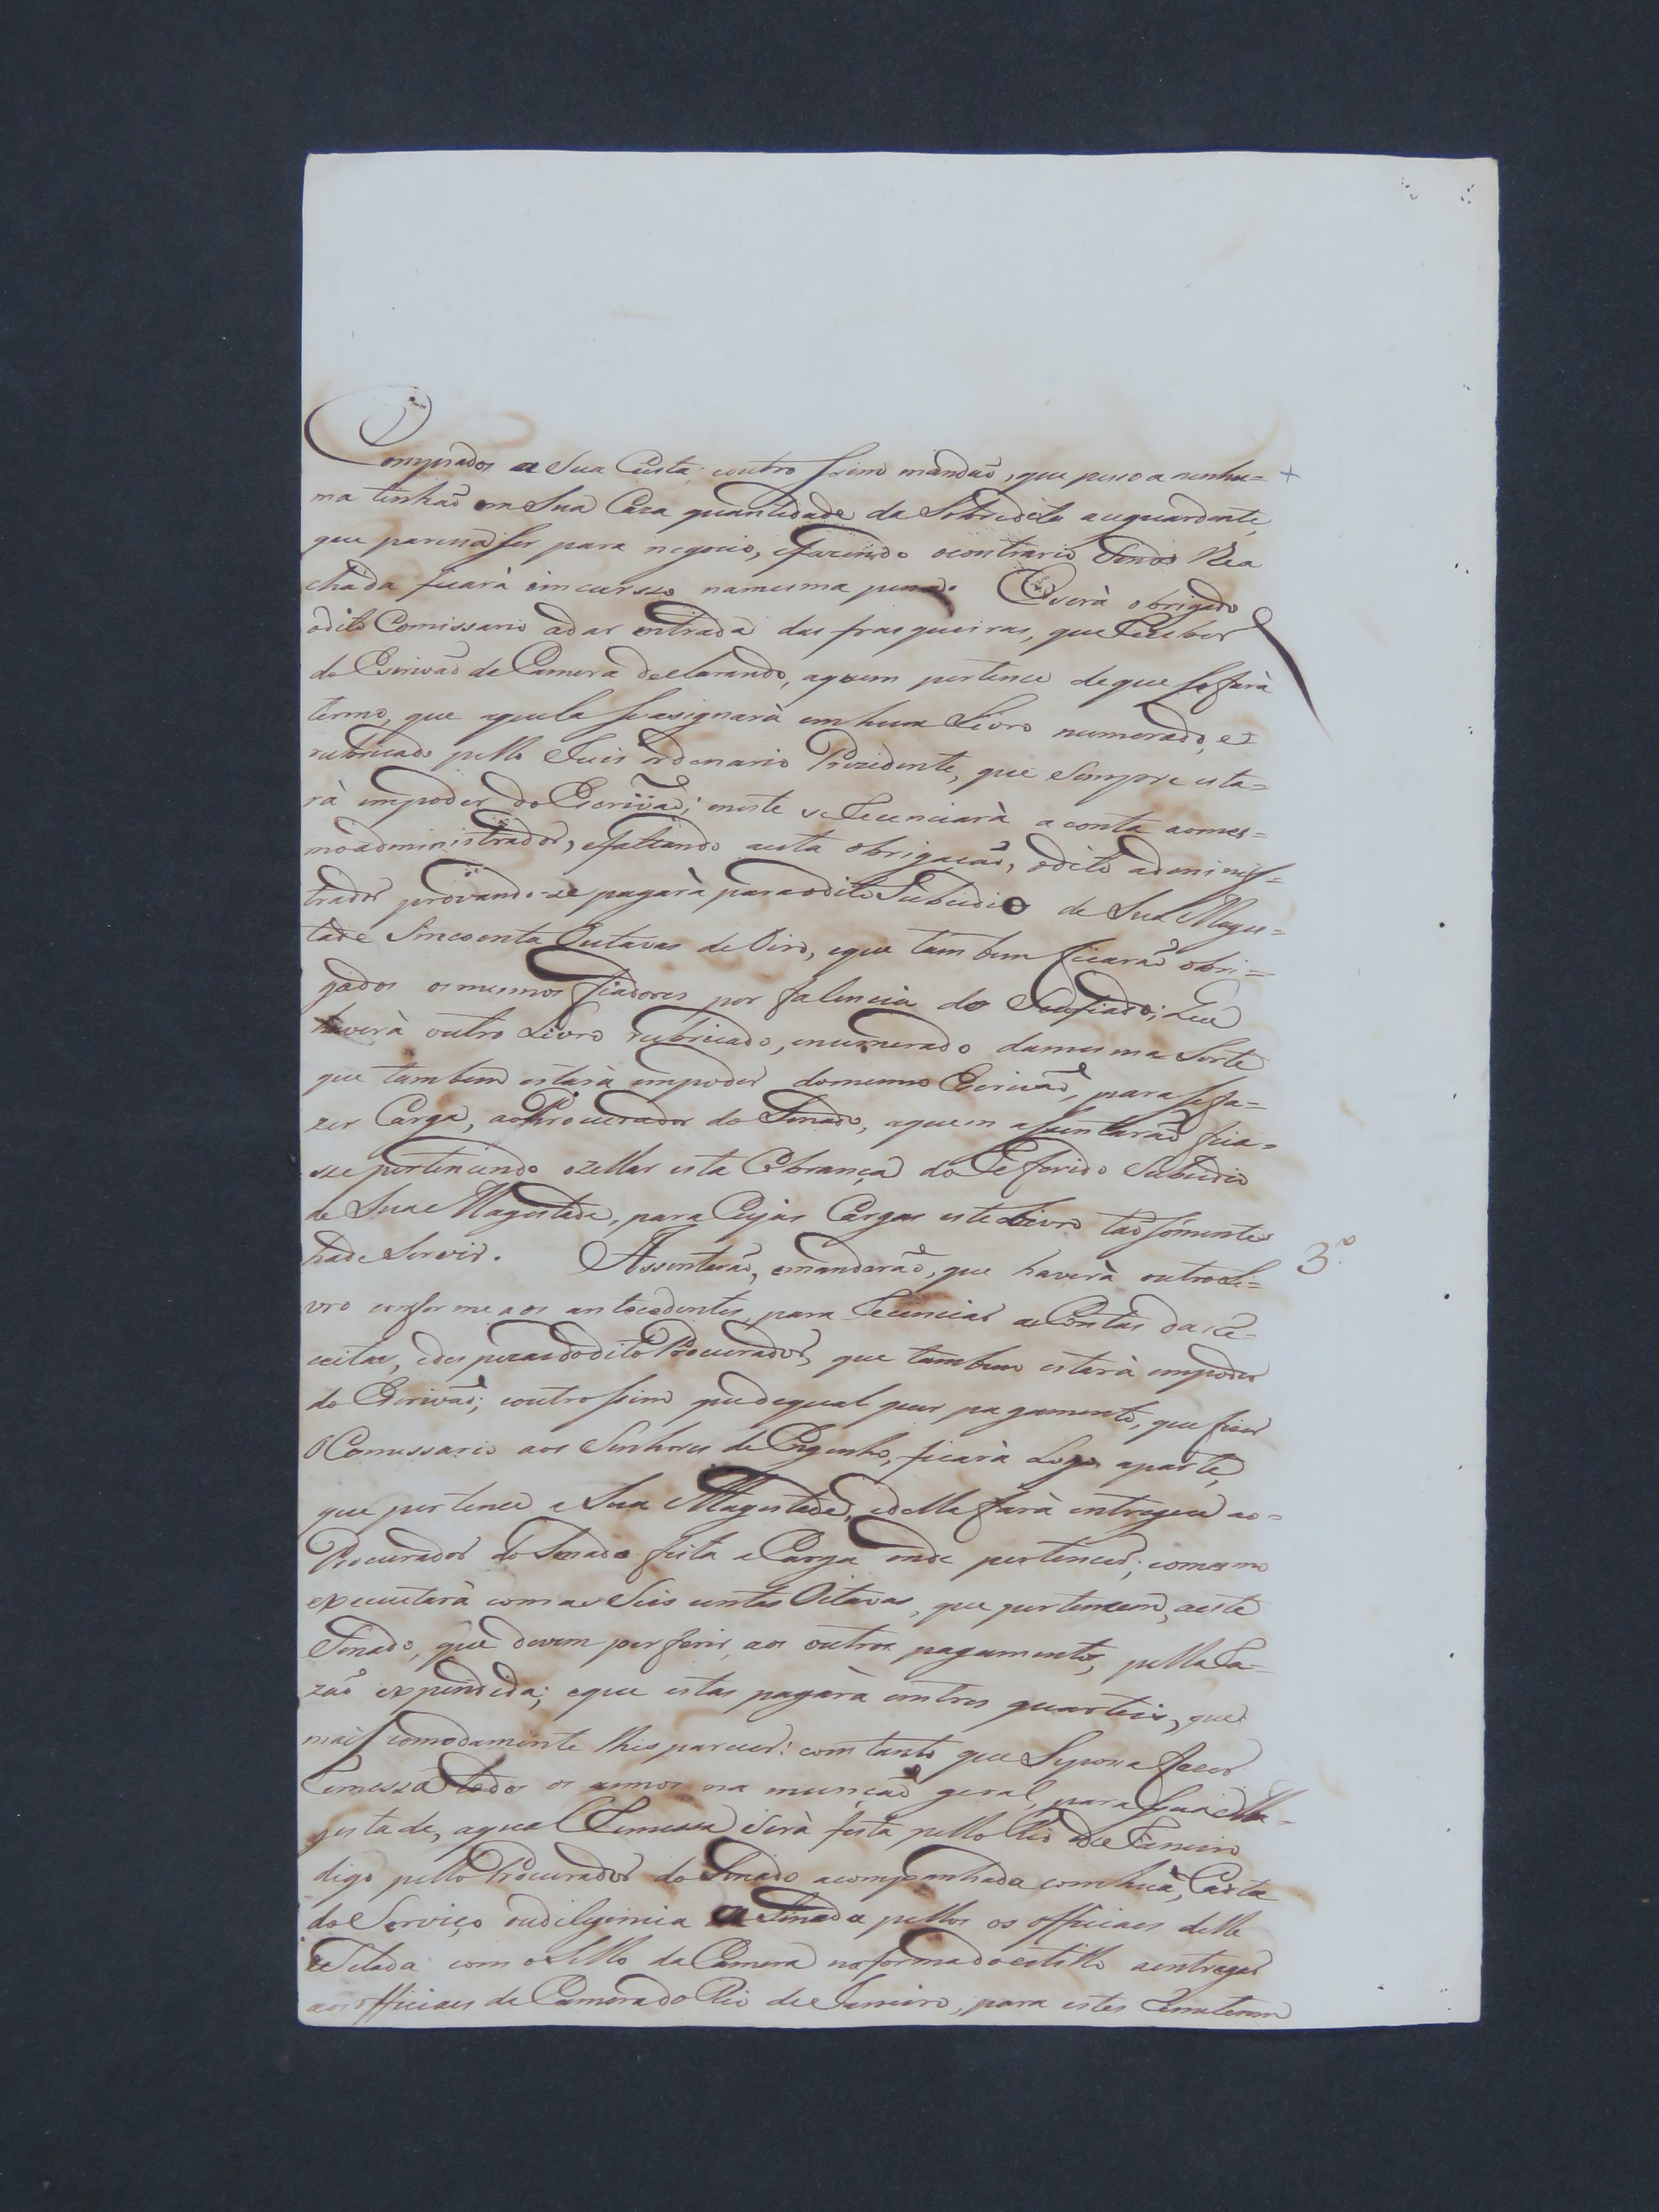 Comprados a Sua Custa; e outro sim mandaõ, que pesoa nenhu= +
ma tenhaõ em Sua Caza quantidade da Sobredita auguardente,
que paresa ser para negocio, e fazendo o contrario Sendo lhe a
chada ficarà emcurso na mesma pena. Eserà obrigado
o dito Comissario a dar entrada das frasqueiras, que Receber
do Escrivaõ de Camera declarando, a quem pertence de que se farà
termo, que aquele se asignarà em hum Livro numerado, e=
rubricado pello Juis ordenario Prezidente, que Sempre esta=
rà em poder do Escrivaõ; e neste se Lecenciarà a conta ao mes=
mo administrador, e faltando a esta obrigacaõ, o dito adminis=
trador provando-se pagarà para o dito Subcidio de Sua Mages=
tade Sincoenta Outavas de Oiro, e que tambem ficaraõ obri=
gados os mesmos fiadores por falencia do Seu fiado;
haverà outro Livro rubricado, e numerado da mesma Sorte
que tambem estarà em poder do mesmo Escrivaõ, para se fa=
zer Carga, ao Procurador do Senado, a quem asentaraõ fica=
se pertencendo o zellar esta Cobrança do Referido Subcidio
de Sua Magestade, para Cujas Cargas este Livro taõ sómente
hade Servir. Assentaraõ, e mandaraõ, que haverà outro Li= 3.º
vro conforme aos antecedentes, para Lecenciar as Contas da Re=
ceita, e despeza do dito Procurador, que tambem estarà em poder
do Escrivaõ; e outro sim que de qual quer pagamento, que fizer
O Comissario aos Senhores de Engenho, ficarà Logo a parte,
que pertence a Sua Magestade, e della farà entregua ao=
Procurador do Senado feita a Carga onde pertencer; e o mesmo
executarà com as Seis centas Oitavas, que pertencem, a este
Senado, que devem perferir aos outros pagamentos, pella Ra=
zaõ expendida; e que estas pagarà em tres quarteis, que
mais comodamente lhes parecer: com tanto que Se possa fazer
Remessa todos os annos na munçaõ geral, para Sua Ma=
gestade, a qual Remessa Serà feita pello Rio de Janeiro
digo pello Procurador do Senado acompanhada com huã Carta
do Serviço e deligencia aSinada pellos os officiaes delle
e Selada com o Sello da Camera na forma do estillo a entregar
aos officiaes de Camera do Rio de Janeiro, para estes Remeterem